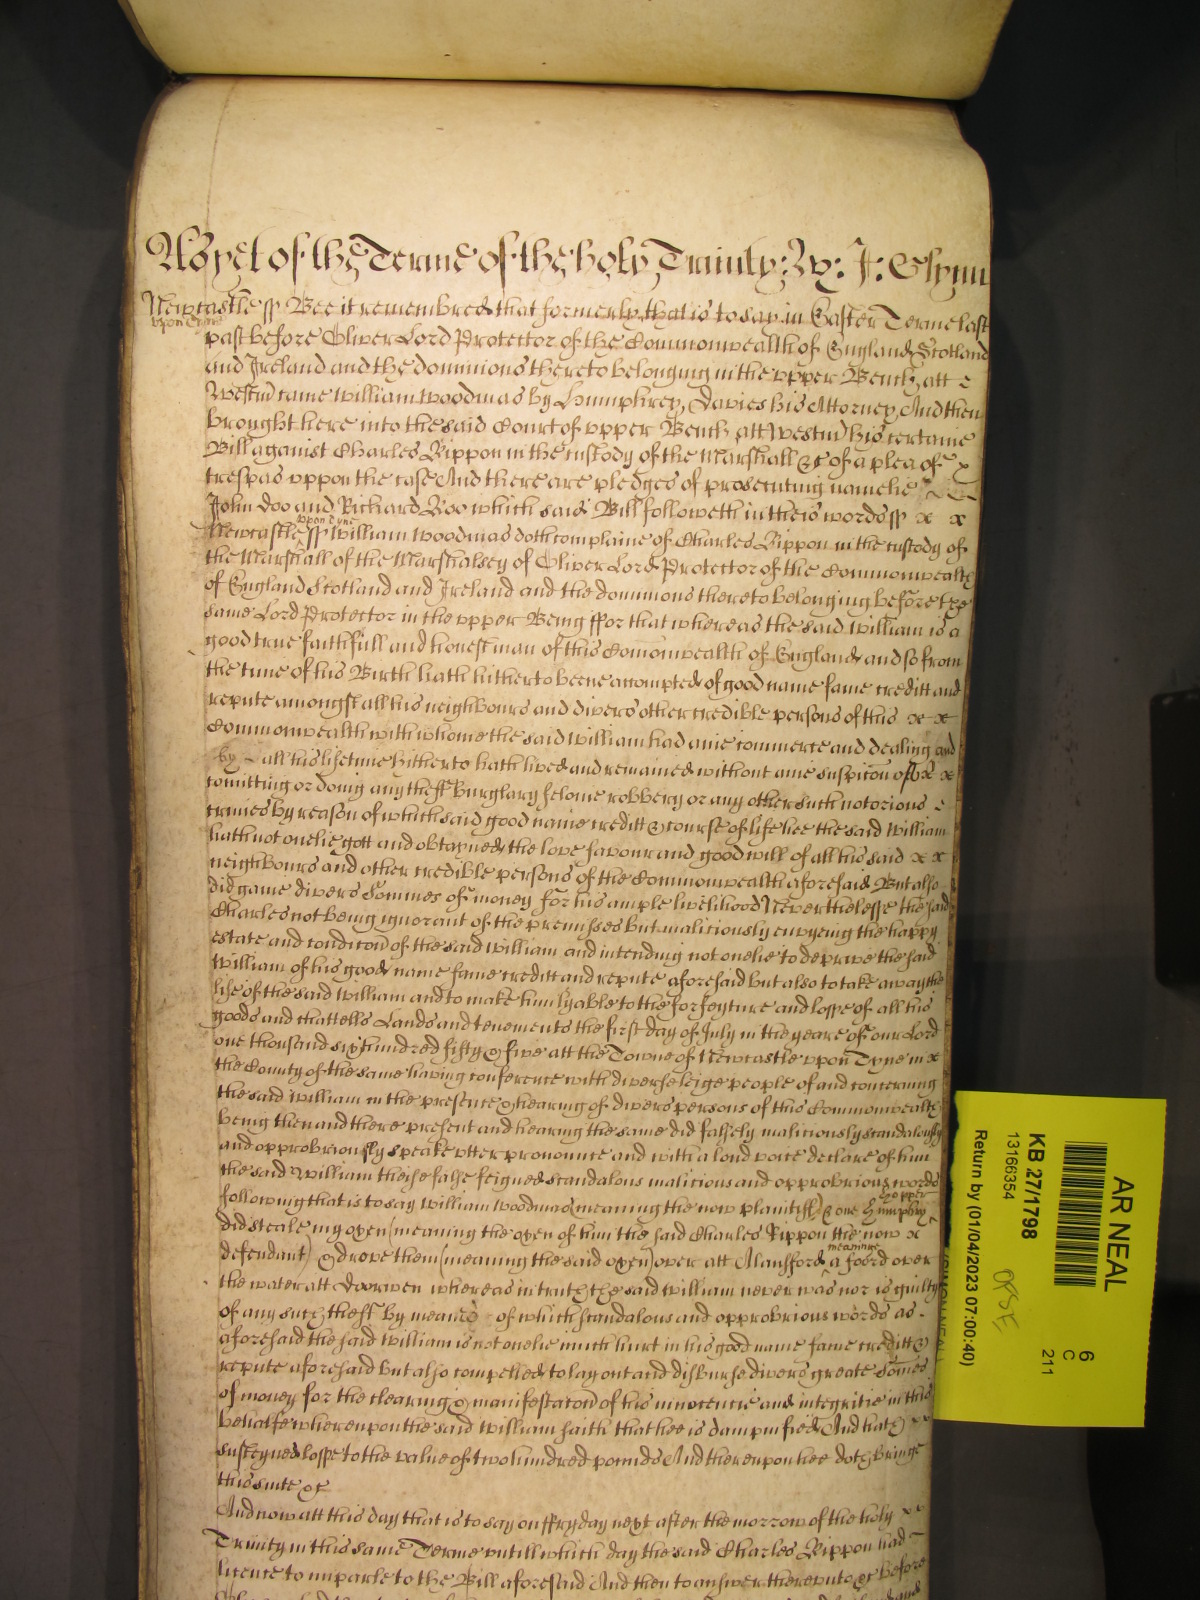 As yet of the Terme of the holy Trinity: Wy: J: Glynn
Newcastle ss Bee it remembred that formerly that is to say in Easter Terme last
vpon Tyne
past before Oliver Lord Protector of the Commonwealth of England Scotland
and Ireland and the dominions thereto belonging in the vpper Bench att
Westm̃ came William Woodmas by Humphrey Davies his Attorney And then
brought here into the said Court of vpper Bench att Westm̃ his certaine
Bill against Charles Rippon in the custody of the Marshall &c of a plea of x
trespas vppon the case And there are pledges of prosecuting namelie
John Doo and Richard Roo which said Bill followeth in theis words ss x x
vpon Tyne
Newcastle ss William Woodmas doth complaine of Charles Rippon in the custody of
the Marshall of the Marshalsey of Oliver Lord Protector of the Commonwealth
of England Scotland and Ireland and the dominions thereto belonging before the
same Lord Protector in the vpper Being ffor that whereas the said William is a
good true faithfull and honest man of this Comonwealth of England and so from
the time of his Birth hath hitherto beene accompted of good name fame creditt and
repute amongst all his neighbours and divers other credible persons of this x x
Commonwealth with whome the said William had anie commerce and dealing and
by all his lifetime hitherto hath lived and remained without anie suspicõn of x x
comitting or doing any theft Burglary felonie robbery or any other such notorious
crimes by reason of which said good name creditt & course of life hee the said William
hath not onelie gott and obtayned the love favour and good will of all his said x x
neighbours and other credible persons of the Commonwealth aforesaid But also
did gaine divers Sommes of money for his ample livelihood Neverthelesse the said
Charles not being ignorant of the premisses but maliciously envyeing the happy
estate and condicõn of the said William and intending not onelie to deprive the said
William of his good name fame creditt and repute aforesaid but also to take away the
life of the said William and to make him lyable to the forfeyture and losse of all his
goods and chattells Lands and tenements the first day of July in the yeare of our Lord
one thousand six hundred fifty & five att the Towne of Newcastle vpon Tyne in x
the County of the same having conference with diverse leige people of and concerning
the said William in the presence & hearing of divers persons of this Commonwealth
being then and there present and hearing the same did falsely maliciously scandalously
and opprobriously speake vtter pronounce and with a loud voice declare of him
the said William theise false feigned scandalous malicious and opprobrious words
following that is to say William Woodmas (meaning the now plaintiff) & one Humphry Hopper
did steale my oxen (meaning the oxen of him the said Charles Rippon the now x
defendant) & drove them (meaning the said oxen) over att Alansford meaning a foord over
the water att Dorwen whereas in truth the said William never was nor is guilty
of any such theft by meanes of which scandalous and opprobrious words as
aforesaid the said William is not onelie much hurt in his good name fame creditt &
repute aforesaid but also compelled to lay out and disburse divers greate Somes
of money for the clearing & manifestacõn of his innocencie and integritie in this
behalfe whereupon the said William saith that hee is dampnified And hath
susteyned losse to the value of two hundred pounds And thereupon hee doth bringe
this suite &c
And now att this day that is to say on ffryday next after the morrow of the holy
Trinity in this same Terme untill which day the said Charles Rippon had
licence to imparle to the Bill aforesaid And then to answer thereunto &c before
AR NEAL
KB 27/1798
13166354
Return by (01/04/2023 07:00:40)
6
C
211